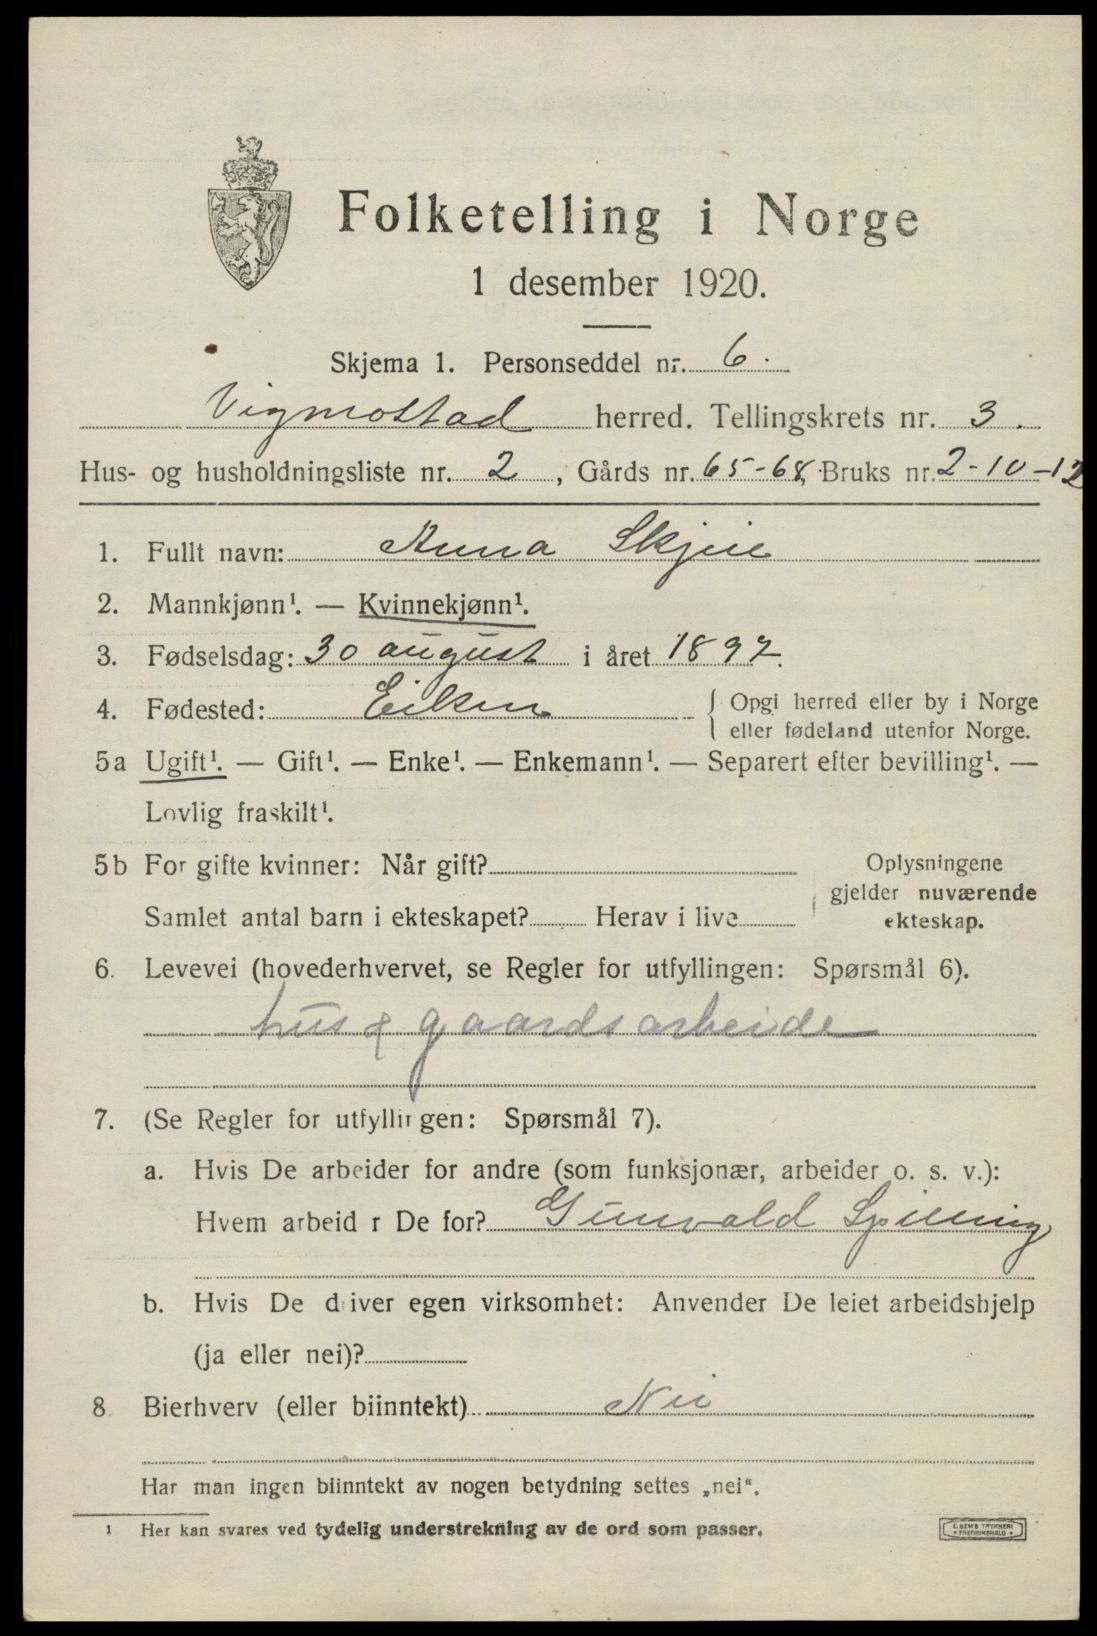 Folketelling i Norge
1 desember 1920.
Skjema 1. Personseddel nr. 6.
Vigmostad herred. Tellingskrets nr. 3.
Hus- og husholdningsliste nr. 2, Gårds nr. 65-68, Bruks nr. 2-10-12
1. Fullt navn: Anna Skjeie
2. Mannkjønn¹. — Kvinnekjønn¹.
3. Fødselsdag: 30 august i året 1897.
4. Fødested: Eiken { Opgi herred eller by i Norge
eller fødeland utenfor Norge.
5a Ugift¹. — Gift¹. — Enke¹. — Enkemann¹. — Separert efter bevilling¹. —
Lovlig fraskilt¹.
5b For gifte kvinner: Når gift?
Samlet antal barn i ekteskapet? Herav i live
Oplysningene
gjelder nuværende
ekteskap.
6. Levevei (hovederhvervet, se Regler for utfyllingen: Spørsmål 6).
hus & gaardsarbeide
7. (Se Regler for utfyllingen: Spørsmål 7).
a. Hvis De arbeider for andre (som funksjonær, arbeider o. s. v.):
Hvem arbeid r De for? Gunvald
b. Hvis De driver egen virksomhet: Anvender De leiet arbeidshjelp
(ja eller nei)?
8. Bierhverv (eller biinntekt) Nei
Har man ingen biinntekt av nogen betydning settes „nei“.
¹ Her kan svares ved tydelig understrekning av de ord som passer.
E. SEM'S TRYKKERI
• FREDRIKSHALD •